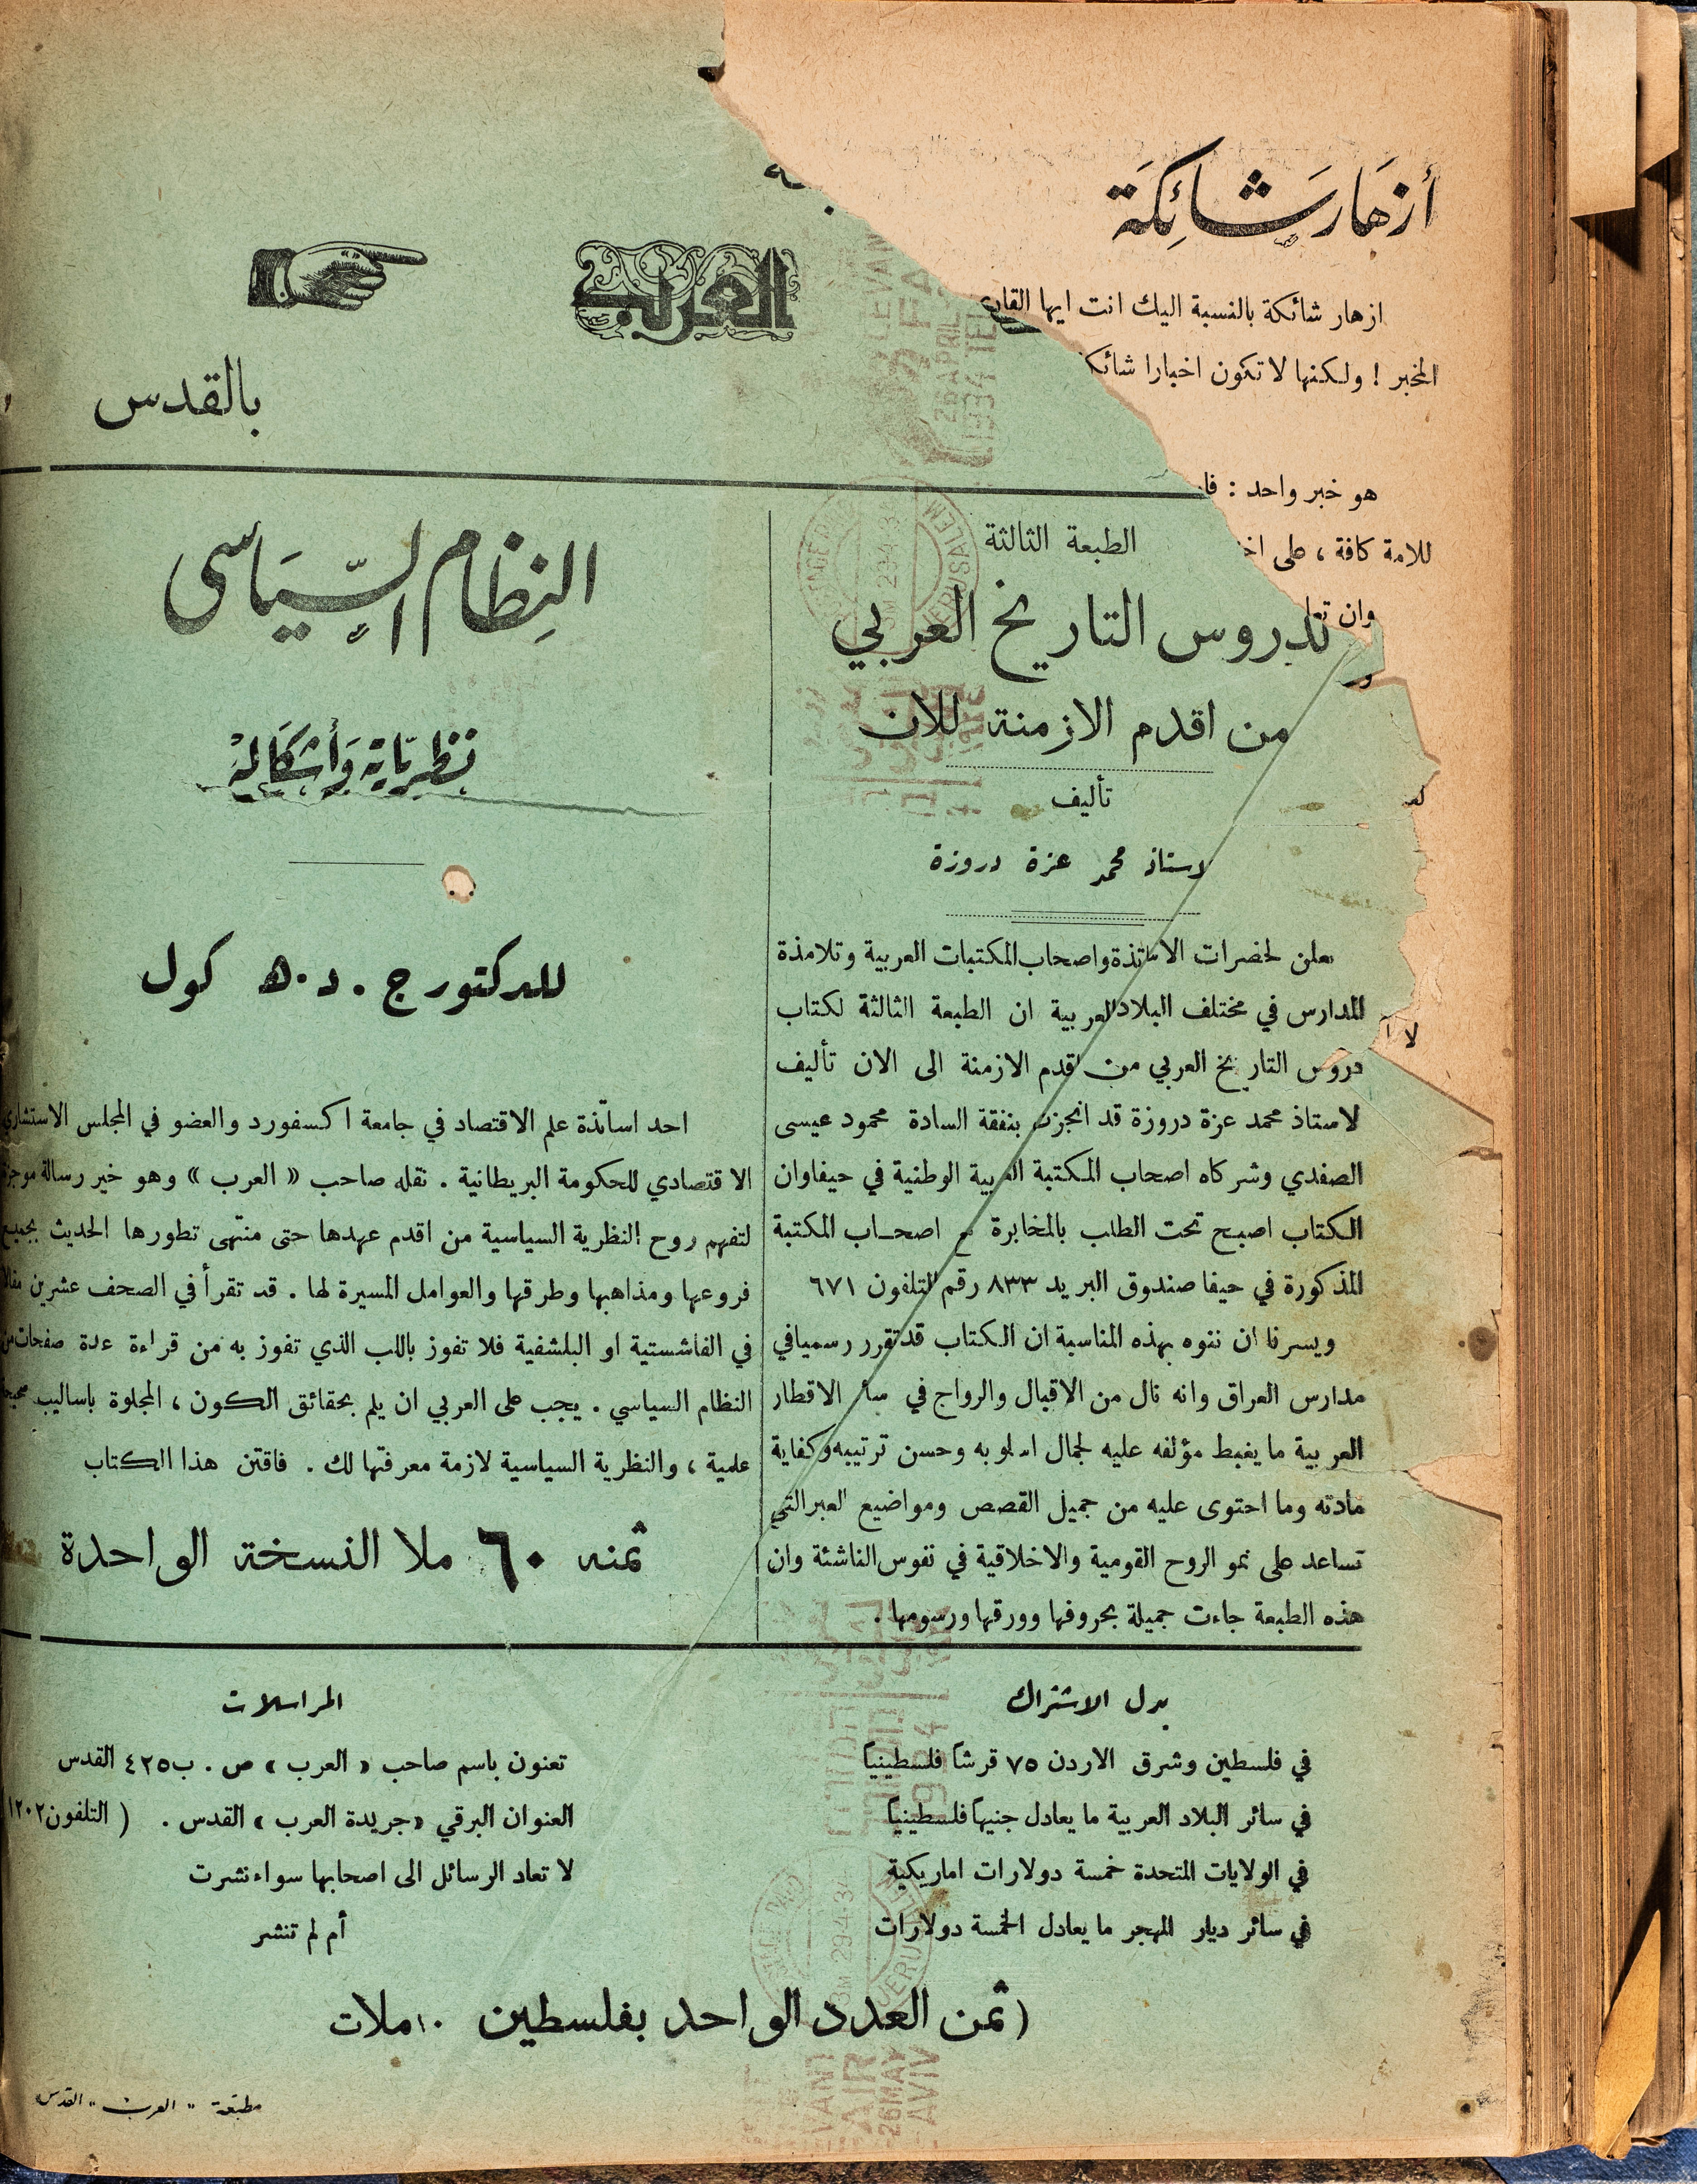 أزهار شائكة
ازهار شائكة بالنسبة اليك انت ايها القارئ
المخبر ! ولكنها لا تكون اخبارا شائكة
هو خبر واحد :
للامة كافة ، على
وان
لا
العرب
بالقدس
الطبعة الثالثة
دروس التاريخ العربي
من اقدم الازمنة للان
تأليف
لاستاذ محمد عزة دروزة
نعلن لحضرات الاساتذة واصحاب المكتبات العربية وتلامذة
المدارس في مختلف البلاد العربية ان الطبعة الثالثة لكتاب
دروس التاريخ العربي من اقدم الازمنة الى الان تأليف
لاستاذ محمد عزة دروزة قد انجزت بنفقة السادة محمود عيسى
الصفدي وشركاه اصحاب المكتبة العربية الوطنية في حيفا وان
الكتاب اصبح تحت الطلب بالمخابرة مع اصحاب المكتبة
المذكورة في حيفا صندوق البريد ٨٣٣ رقم التلفون ٦٧١
ويسرنا ان ننوه بهذه المناسبة ان الكتاب قد تقرر رسميا في
مدارس العراق وانه نال من الاقبال والرواج في سائر الاقطار
العربية ما يغبط مؤلفه عليه لجمال اسلوبه وحسن ترتيبه وكفاية
مادته وما احتوى عليه من جميل القصص ومواضيع العبر التي
تساعد على نمو الروح القومية والاخلاقية في نفوس الناشئة وان
هذه الطبعة جاءت جميلة بحروفها وورقها ورسومها .
النظام السياسى
نظرياته وأشكاله
للدكتور ج . د . ه كول
احد اساتذة علم الاقتصاد في جامعة اكسفورد والعضو في المجلس الاستشاري
الاقتصادي للحكومة البريطانية . نقله صاحب « العرب » وهو خير رسالة موجزة
لتفهم روح النظرية السياسية من اقدم عهدها حتى منتهى تطورها الحديث بجميع
فروعها ومذاهبها وطرقها والعوامل المسيرة لها . قد تقرأ في الصحف عشرين مقالا
في الفاشستية او البلشفية فلا تفوز باللب الذي تفوز به من قراءة عدة صفحات من
النظام السياسي . يجب على العربي ان يلم بحقائق الكون ، المجلوة باساليب صحيحة
علمية ، والنظرية السياسية لازمة معرفتها لك . فاقتن هذا الكتاب
ثمنه ٦٠ ملا النسخة الواحدة
بدل الاشتراك
في فلسطين وشرق الاردن ٧٥ قرشا فلسطينياً
في سائر البلاد العربية ما يعادل جنيها فلسطينياً
في الولايات المتحدة خمسة دولارات اماريكية
في سائر ديار المهجر ما يعادل الخمسة دولارات
المراسلات
تعنون باسم صاحب « العرب » ص . ب ٤٢٥ القدس
العنوان البرقي « جريدة العرب » القدس . ( التلفون ١٢٠٢
لا تعاد الرسائل الى اصحابها سواء نشرت
أم لم تنشر
( ثمن العدد الواحد بفلسطين ١٠ ملات
مطبعة " العرب " القدس
LEVANT
FAIR
26 APRIL
1934 TEL
JERUSALEM
29 4 34
29 4 34
JERU
VANT
AIR
26 MAY
AVIV